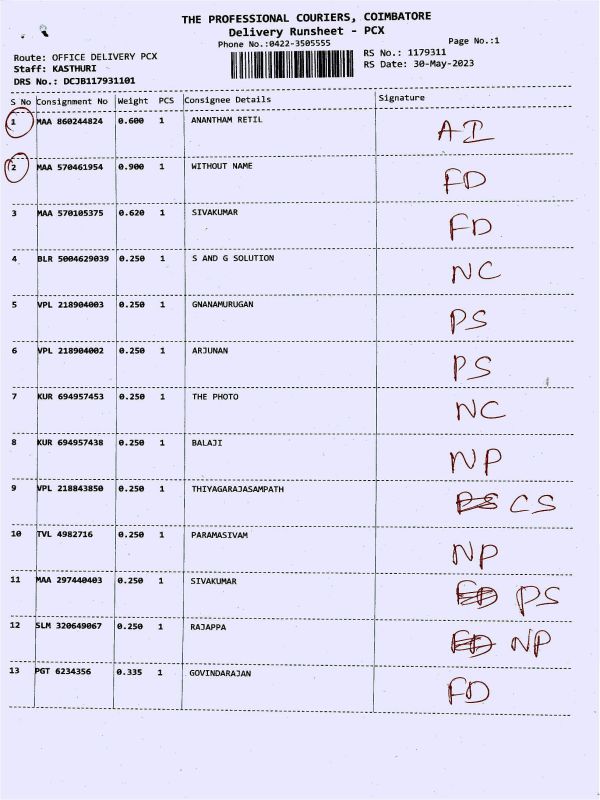 THE PROFESSIONAL COURIERS, COIMBATORE
Delivery Runsheet - PCX
Phone No.:0422-3505555
Page No.:1
Route: OFFICE DELIVERY PCX
RS No.: 1179311
Staff: KASTHURI
RS Date: 30-May-2023
DRS No.: DCJB117931101
S No Consignment No Weight PCS Consignee Details Signature
1 MAA 860244824 0.600 1 ANANTHAM RETIL AI
2 MAA 570461954 0.900 1 WITHOUT NAME FD
3 MAA 570105375 0.620 1 SIVAKUMAR FD
4 BLR 5004629039 0.250 1 S AND G SOLUTION NC
5 VPL 218904003 0.250 1 GNANAMURUGAN PS
6 VPL 218904002 0.250 1 ARJUNAN PS
7 KUR 694957453 0.250 1 THE PHOTO NC
8 KUR 694957438 0.250 1 BALAJI NP
9 VPL 218843850 0.250 1 THIYAGARAJASAMPATH PS CS
10 TVL 4982716 0.250 1 PARAMASIVAM NP
11 MAA 297440403 0.250 1 SIVAKUMAR FD PS
12 SLM 320649067 0.250 1 RAJAPPA FD NP
13 PGT 6234356 0.335 1 GOVINDARAJAN FD